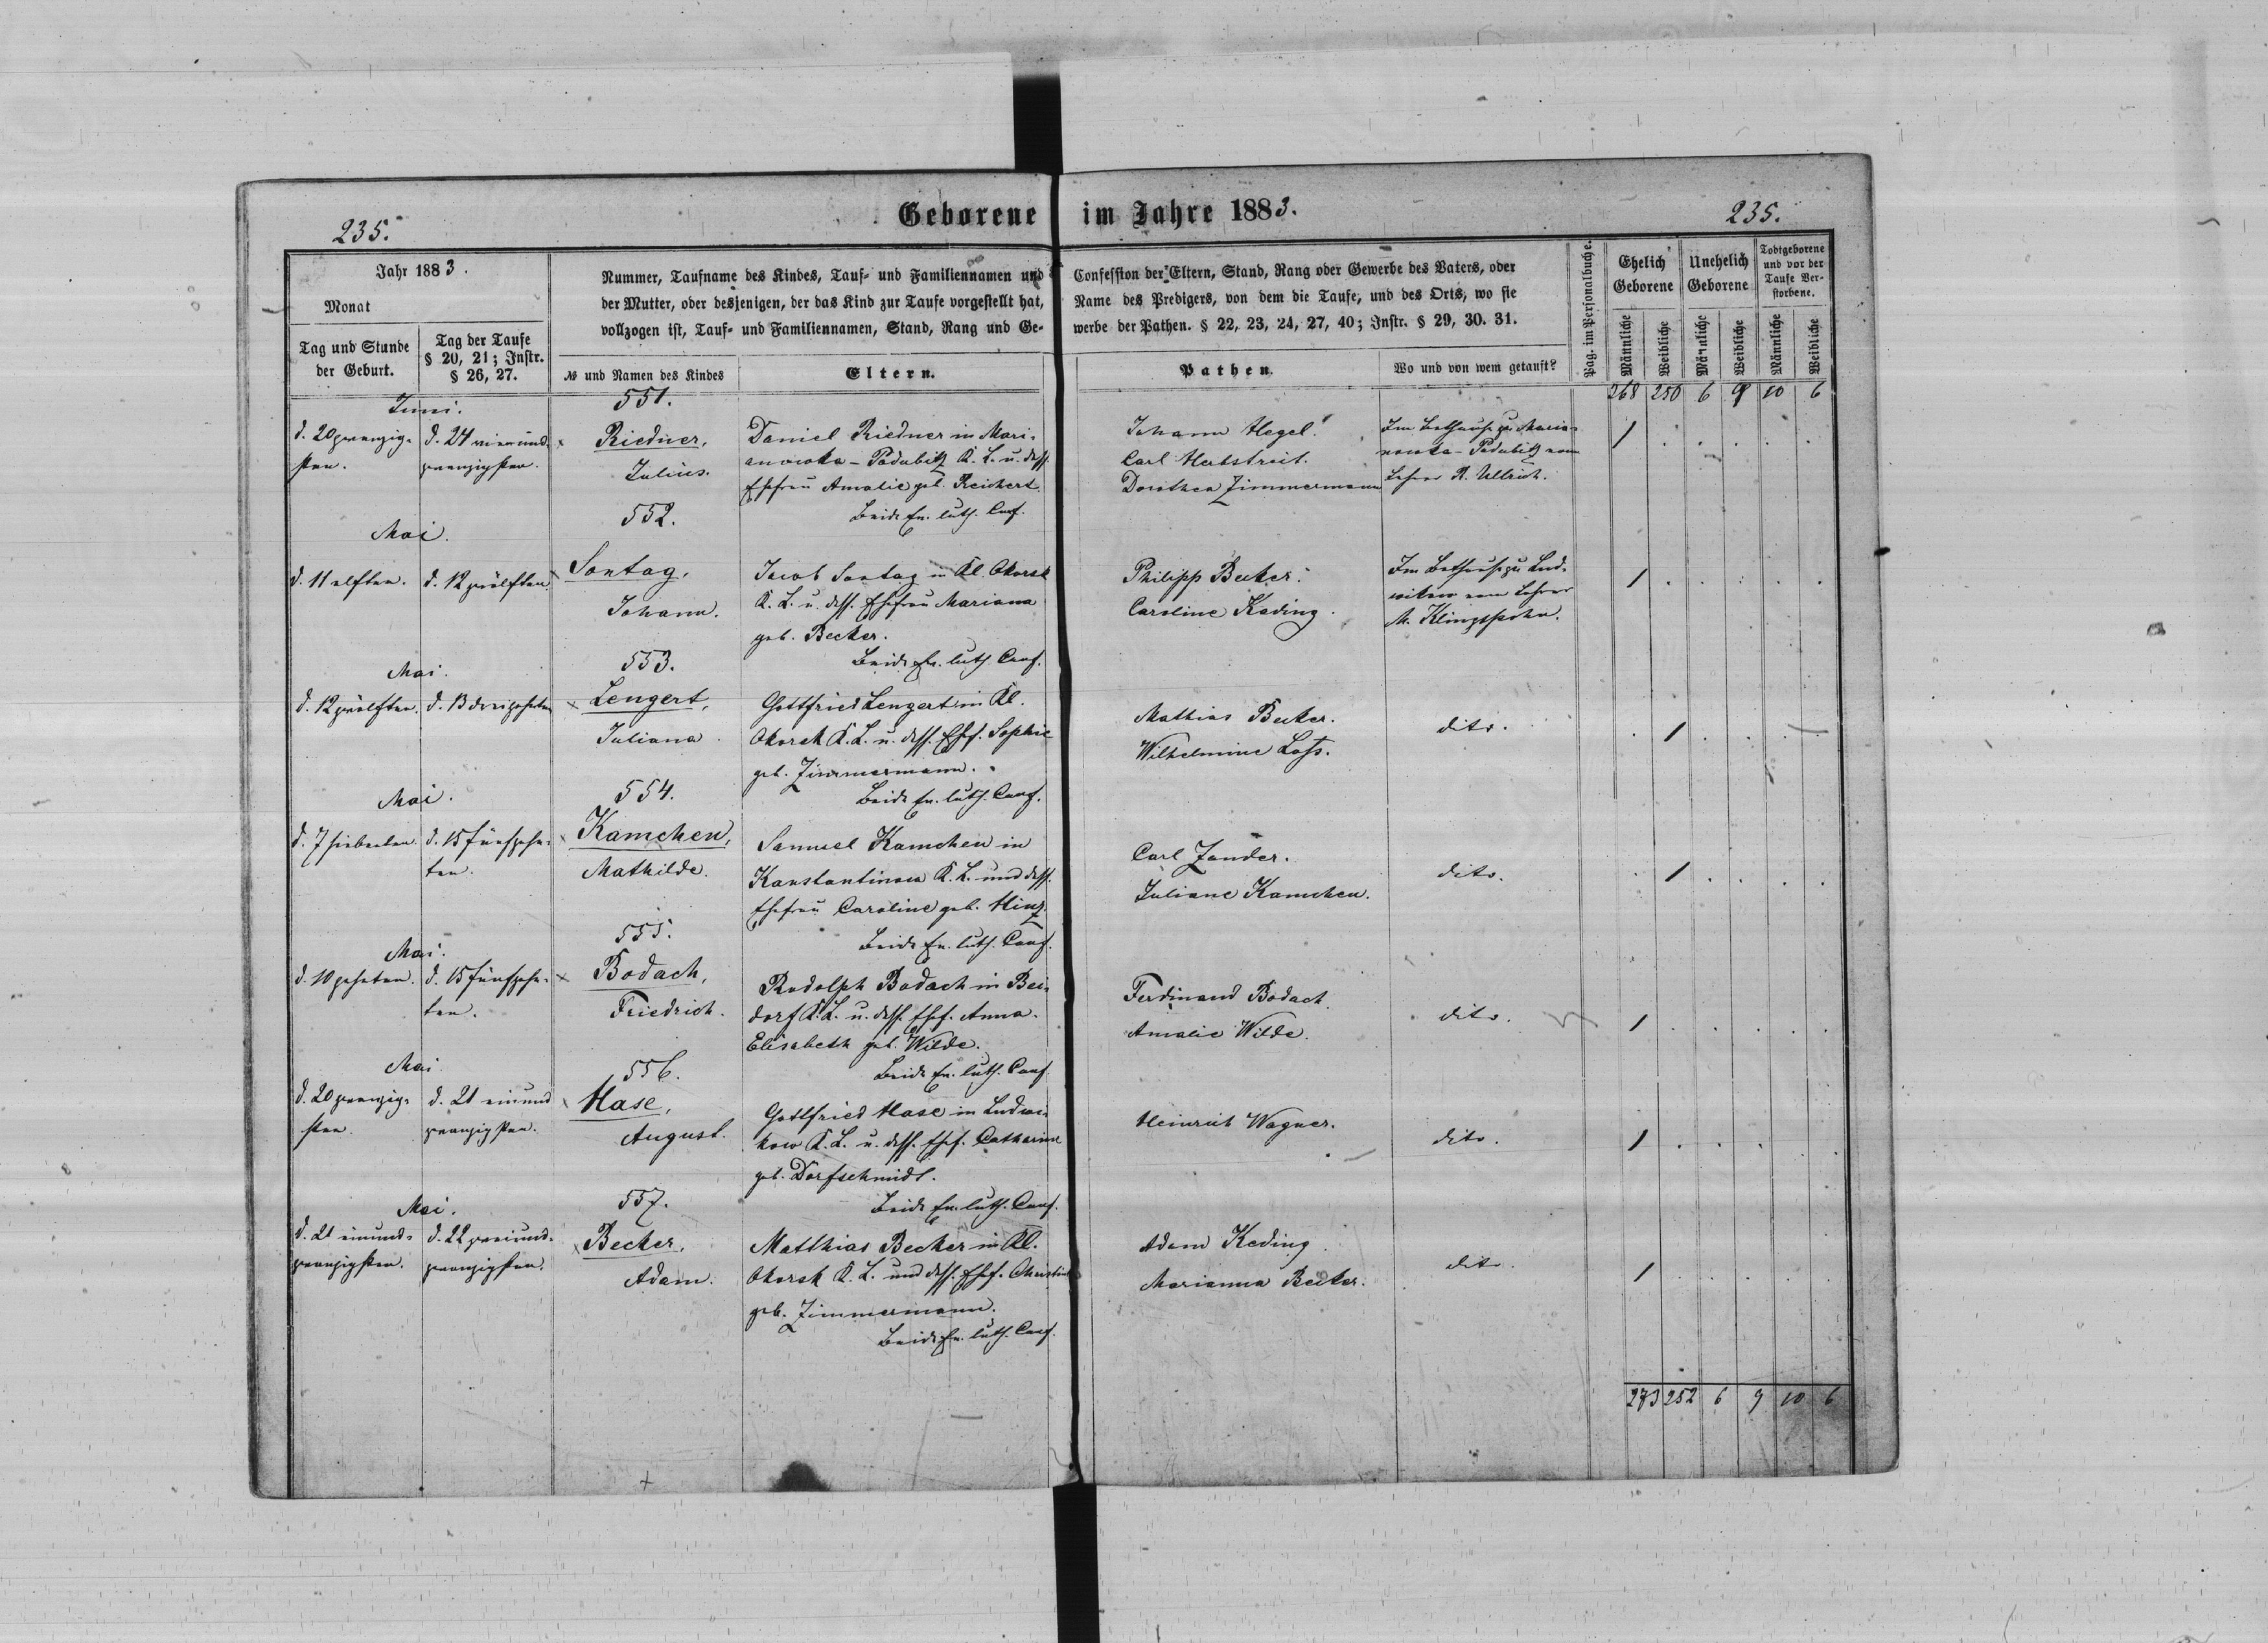 235.
Geborene im Jahre 1883.
235.
Jahr 1883.
Monat
Tag und Stunde
der Geburt.
Tag der Taufe
§ 20, 21; Instr.
§ 26, 27.
Nummer, Taufname des Kindes, Tauf- und Familiennamen und
der Mutter, oder desjenigen, der das Kind zur Taufe vorgestellt hat,
vollzogen ist, Tauf- und Familiennamen, Stand, Rang und Ge-
№ und Namen des Kindes
Eltern.
Confession der Eltern, Stand, Rang oder Gewerbe des Vaters, oder
Name des Predigers, von dem die Taufe, und des Orts, wo sie
werbe der Pathen. § 22, 23, 24, 27, 40; Instr. § 29, 30. 31.
Pathen.
Wo und von wem getauft?
Pag. im Personalbuche.
Ehelich
Geborene
Unehelich
Geborene
Todtgeborene
und vor der
Taufe Ver-
storbene.
Männliche
Weibliche
Männliche
Weibliche
Männliche
Weibliche
268 250 6 9 10 6
Juni.
d. 20 zwanzig-
sten.
d. 24 vierund-
zwanzigsten.
551.
Riedner,
Julius.
Daniel Riedner in Mari-
anowka-Padubitz K. L. u. dess.
Ehefrau Amalie geb. Reichert.
Beide Ev. luth. Conf.
Johann Hegel.
Carl Herbstreit.
Dorothea Zimmermann
Im Bethause zu Maria-
nowka-Padubitz vom
Lehrer R. Ullrich.
1
Mai.
d. 11 elften.
d. 12 zwölften.
552.
Sontag,
Johann.
Jacob Sontag in Kl. Okorsk
K. L. u. dess. Ehefrau Mariana
geb. Becker.
Beide Ev. luth. Conf.
Philipp Becker.
Caroline Kading.
Im Bethause zu Lud-
wikow vom Lehrer
M. Klingspohn.
1
Mai.
d. 12 zwölften.
d. 13 dreizehnten
553.
Lengert,
Juliana.
Gottfried Lengert in Kl.
Okorsk K. L. u. dess. Ehef. Sophie
geb. Zimmermann.
Beide Ev. luth. Conf.
Mathias Becker.
Wilhelmine Loss.
dito.
1
Mai.
d. 7 siebenten.
d. 15 fünfzehn-
ten.
554.
Kamchen,
Mathilde.
Samuel Kamchen in
Konstantinow K. L. und dess.
Ehefrau Caroline geb. Hinz.
Beide Ev. luth. Conf.
Carl Zander.
Juliane Kamchen.
dito.
1
Mai.
d. 10 zehnten.
d. 15 fünfzehn-
ten.
555.
Bodach,
Friedrich.
Rudolph Bodach in Bei-
dorf K. L. u. dess. Ehef. Anna.
Elisabeth geb. Wilde.
Beide Ev. luth. Conf.
Ferdinand Bodach.
Amalie Wilde.
dito.
1
Mai.
d. 20 zwanzig-
sten.
d. 21 einund
zwanzigsten.
556.
Hase,
August.
Gottfried Hase in Ludwi-
kow K. L. u. dess. Ehef. Catharina
geb. Dorfschmidt.
Beide Ev. luth. Conf.
Heinrich Wagner.
dito.
1
Mai.
d. 21 einund-
zwanzigsten.
d. 22 zweiund-
zwanzigsten.
557.
Becker,
Adam.
Matthias Becker in Kl.
Okorsk K. L. und dess. Ehef. Christine
geb. Zimmermann.
Beide Ev. luth. Conf.
Adam Keding.
Marianna Becker.
dito.
1
273 252 6 9 10 6